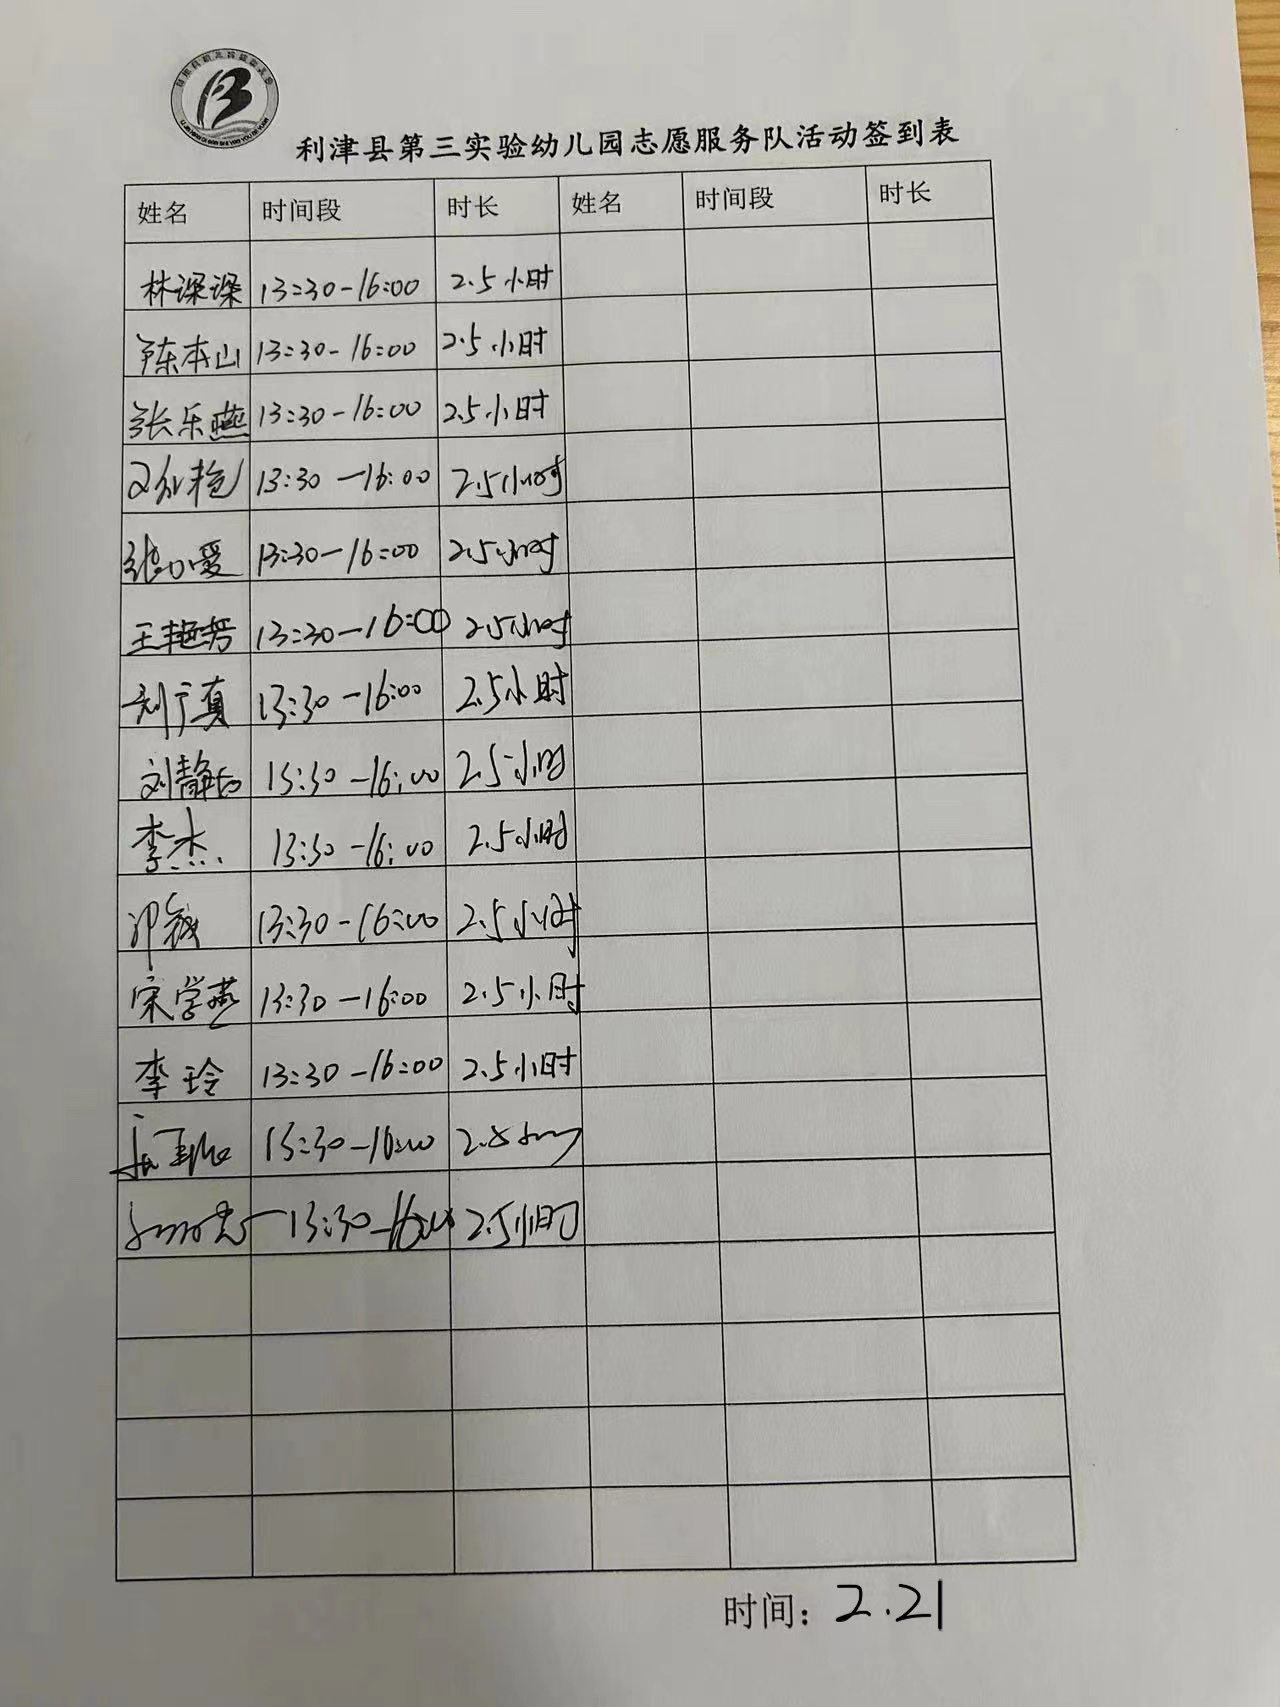 利津县第三实验幼儿园志愿服务队活动签到表
姓名 时间段 时长 姓名 时间段 时长
林深深 13:30-16:00 2.5小时
陈本山 13:30-16:00 2.5小时
张乐燕 13:30-16:00 2.5小时
13:30-16:00 2.5小时
13:30-16:00 2.5小时
王艳芳 13:30-16:00 2.5小时
刘广真 13:30-16:00 2.5小时
刘静 13:30-16:00 2.5小时
李杰 13:30-16:00 2.5小时
13:30-16:00 2.5小时
宋学燕 13:30-16:00 2.5小时
李玲 13:30-16:00 2.5小时
13:30-16:00 2.5小时
13:30-16:00 2.5小时
时间：2.21